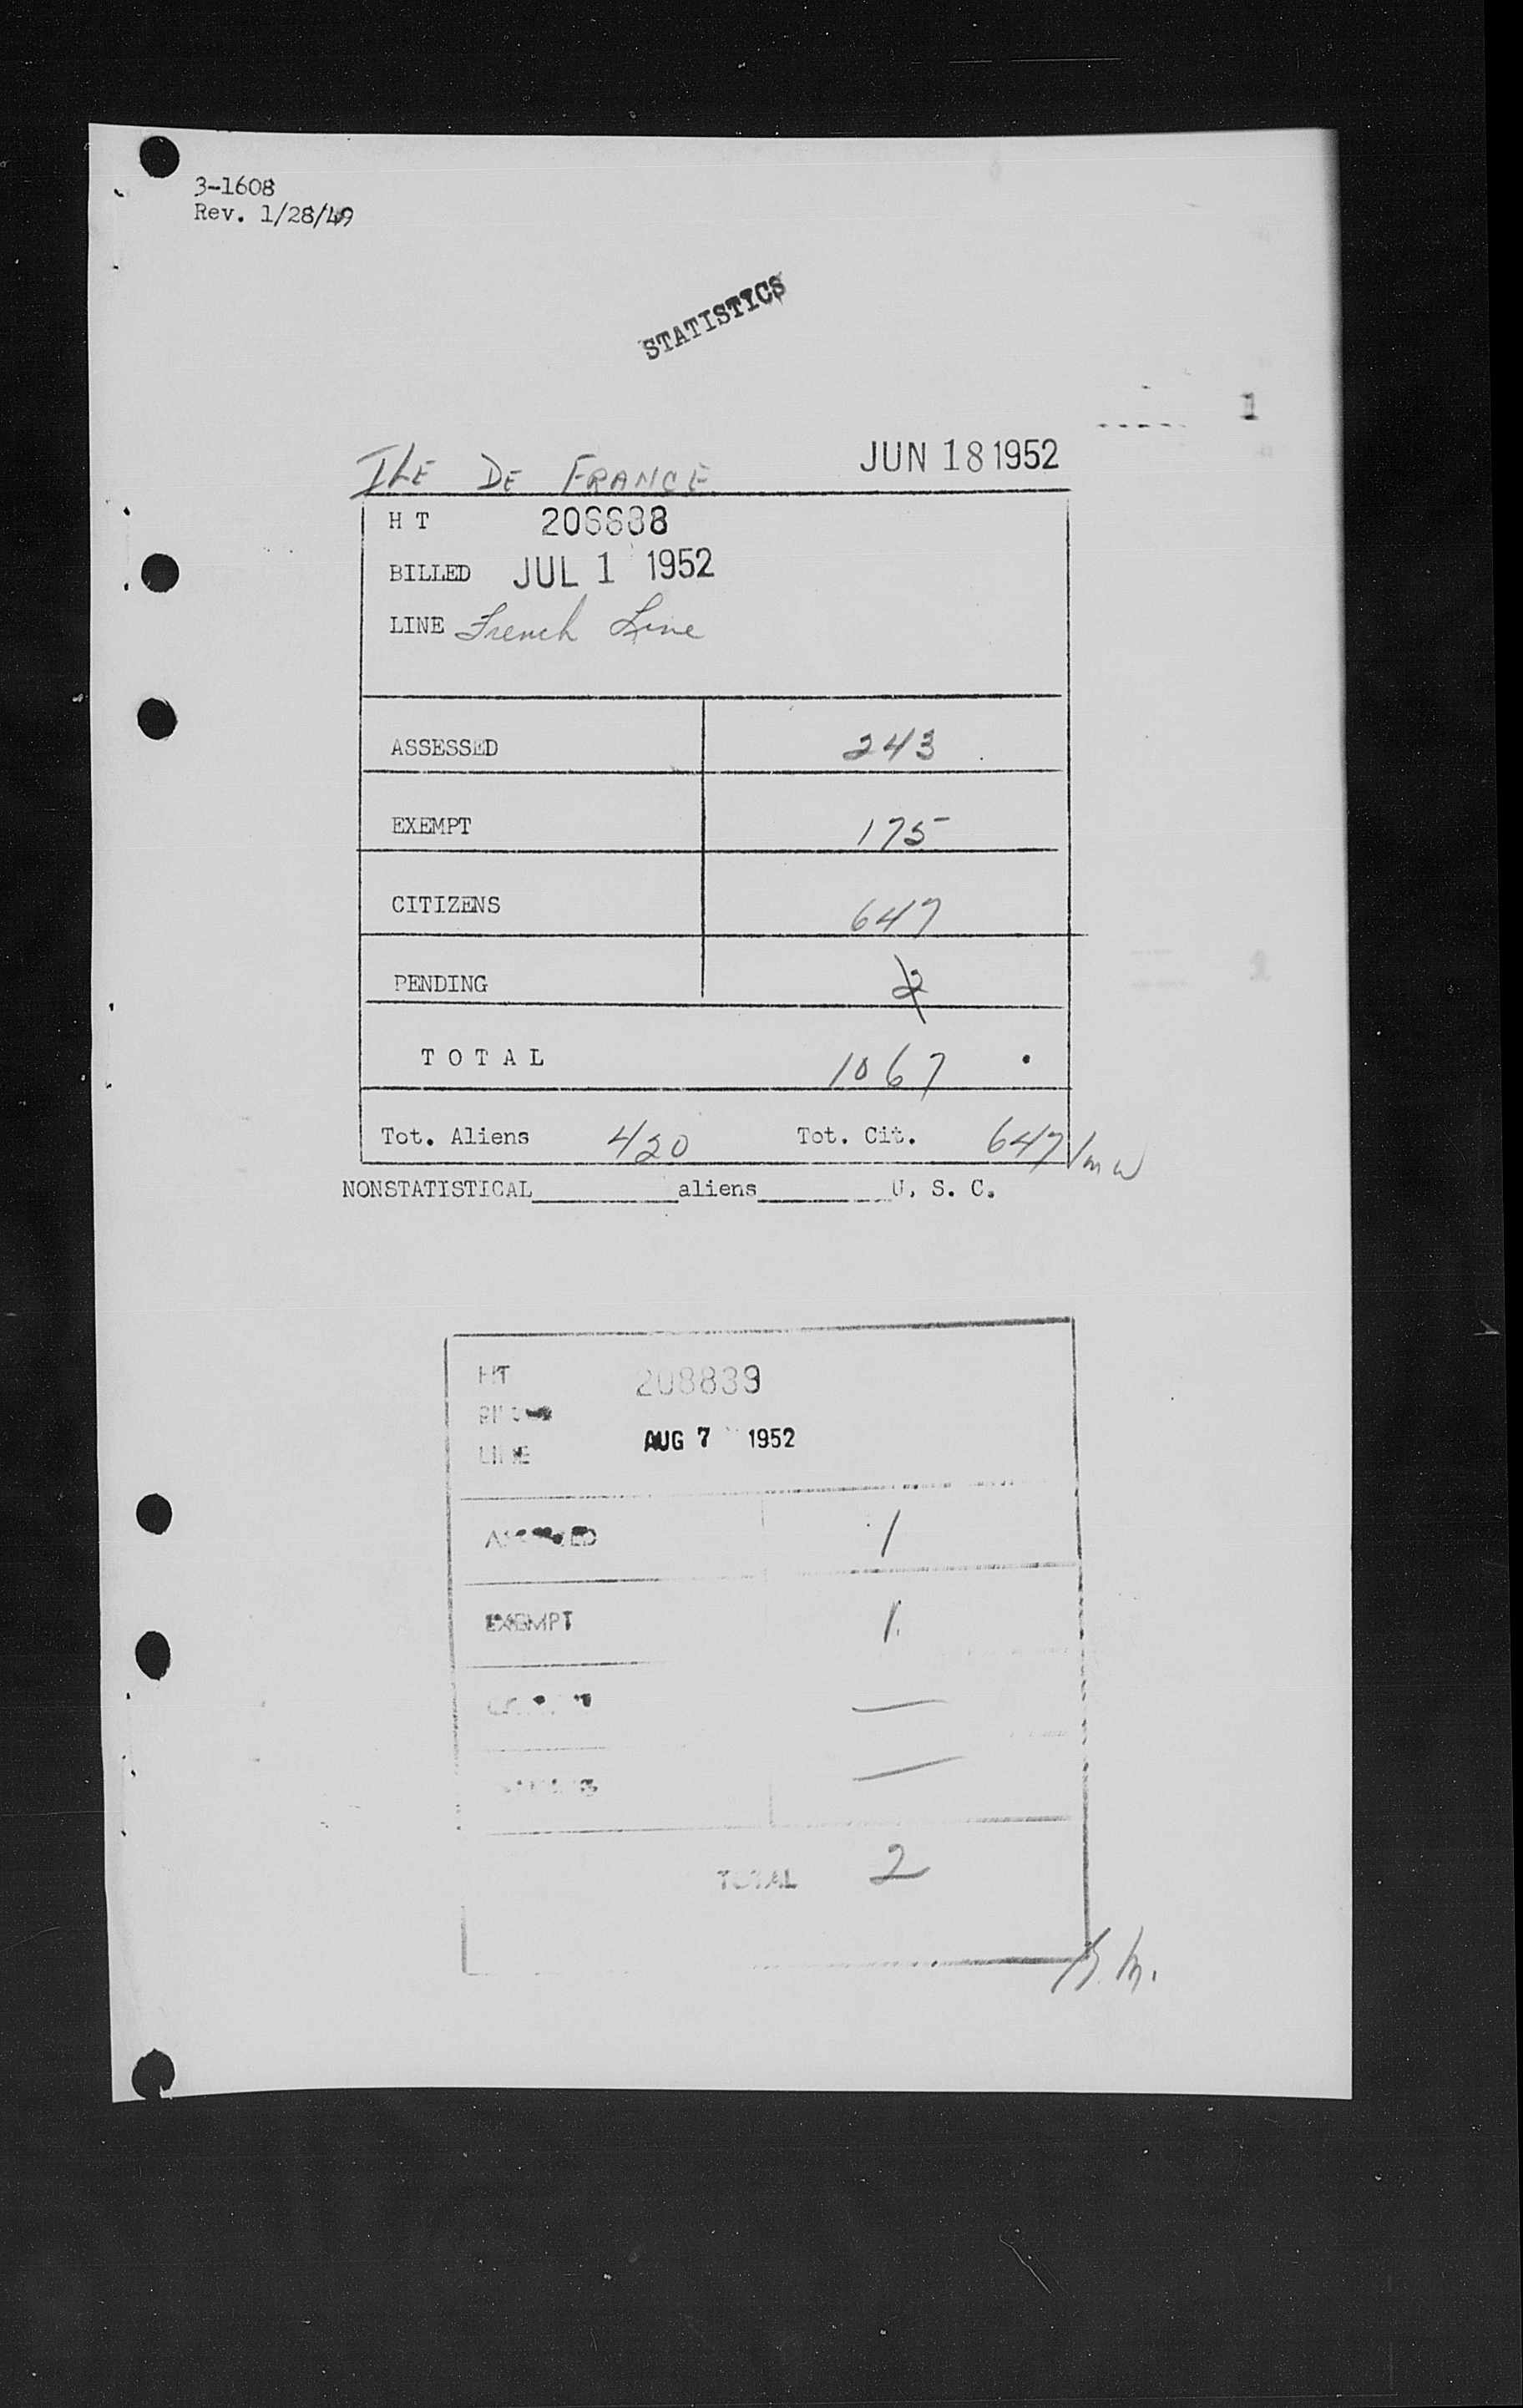 3-1608
Rev. 1/28/49
STATISTICS
1
ILE DE FRANCE JUN 18 1952
H T 206638
BILLED JUL 1 1952
LINE French Line
ASSESSED 243
EXEMPT 175
CITIZENS 647
PENDING 2
T O T A L 1067
Tot. Aliens 420 Tot. Cit. 647/mw
NONSTATISTICAL__________aliens__________U. S. C.
HT 208839
LINE AUG 7 1952
ASSESSED 1
EXEMPT 1
—
—
TOTAL 2